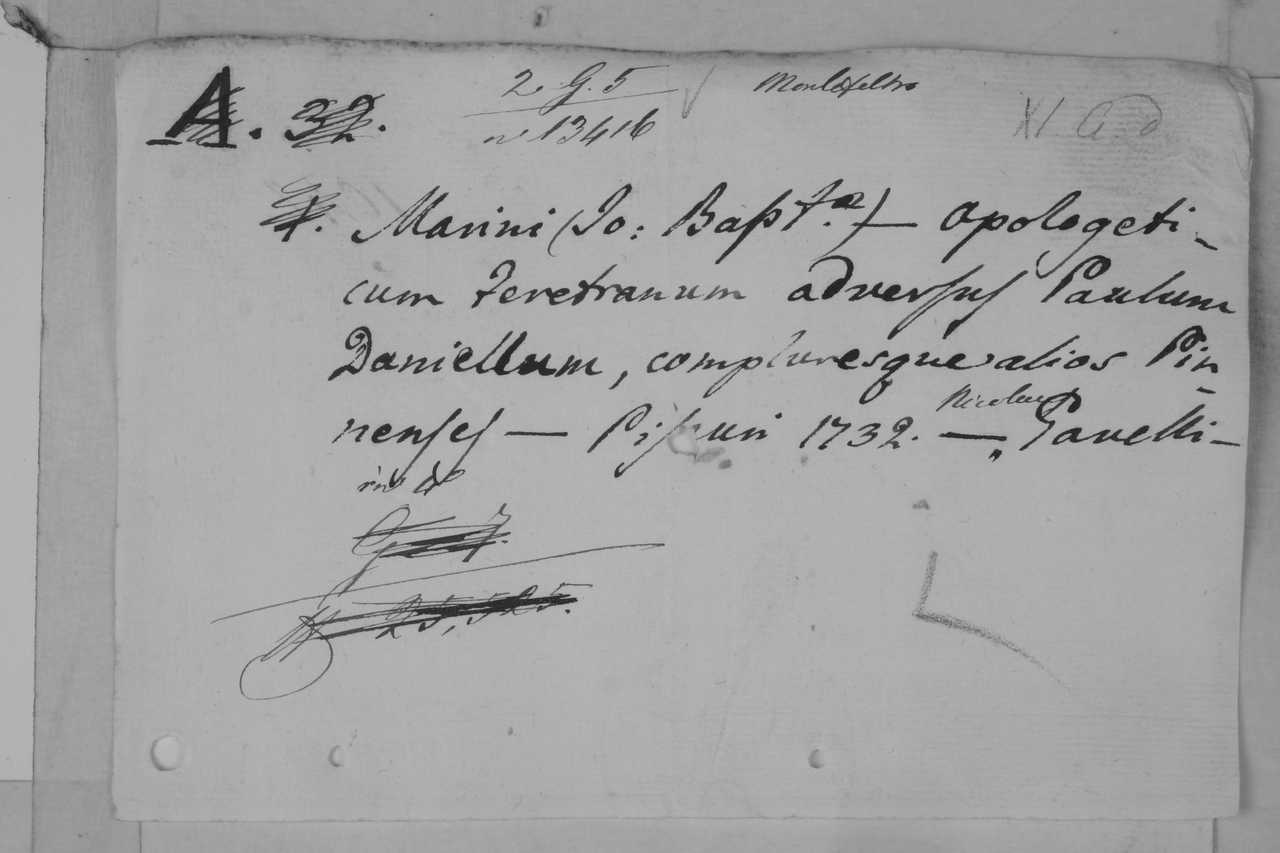 A. 32.
2. G. 5
n° 13416
Montefeltro
XI a d
4. Marini (Jo: Bapt.a) — Apologeti-
cum Feretranum adversus Paulum
Daniellum, compluresque alios Pin-
nenses — Pisauri 1732. — Nicolaus Gavelli-
in 4°
G 7.
N 25,525.